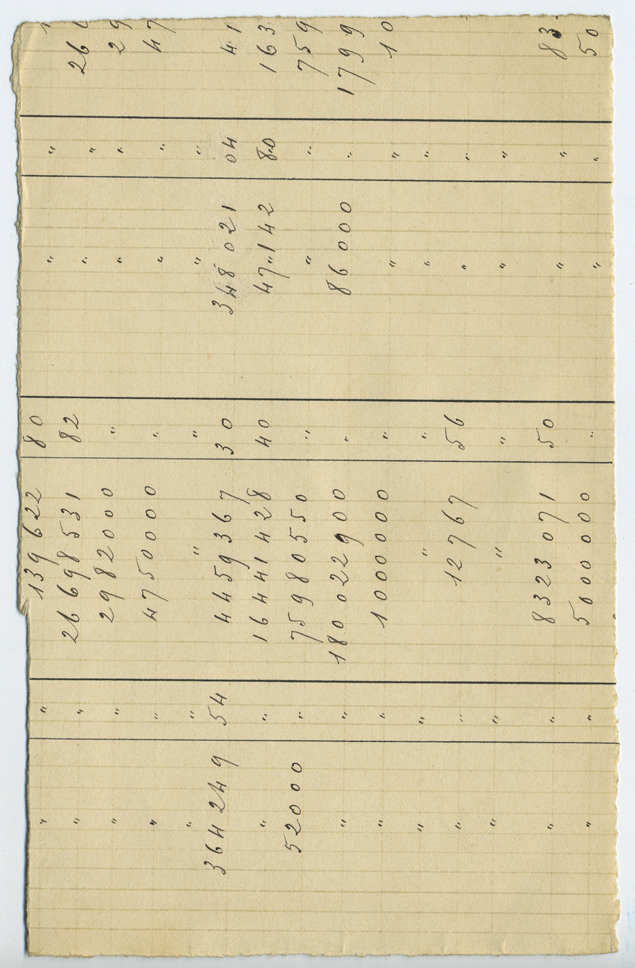 " " 139 622 80 " "
" " 26 698 531 82 " " 26
" " 2 982 000 " " " 29
" " 4 750 000 " " " 47
" " " " " "
364 249 54 4 459 367 30 348 021 04 41
" " 16 441 428 40 47.142 80 163
52000 " 75 980 550 " " " 759
" " 180 022 900 " 86 000 " 1799
" " 1 000 000 " " " 10
" " " " " "
" " 12 767 56 " "
" " " " " "
" " 8 323 071 50 " " 83
" " 5 000 000 " " " 50